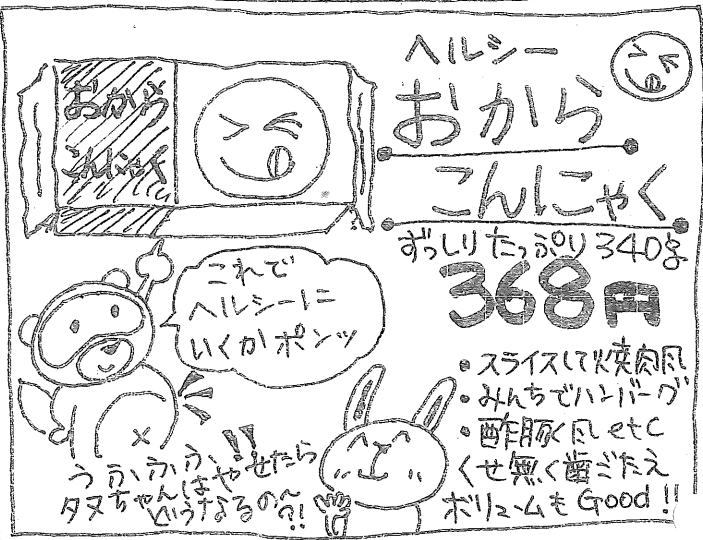 おから
こんにゃく
ヘルシー
おから
こんにゃく
ずっしりたっぷり340g
368円
これで
ヘルシーに
いくかポンッ
・スライスして焼肉風
・みんちでハンバーグ
・酢豚風etc
くせ無く歯ごたえ
ボリュームもGood!!
うふふふ、!!
タヌちゃんはやせたら
どうなるの〜?!